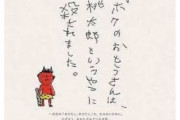 ボクのおとうさんは、
桃太郎というやつに
殺されました。